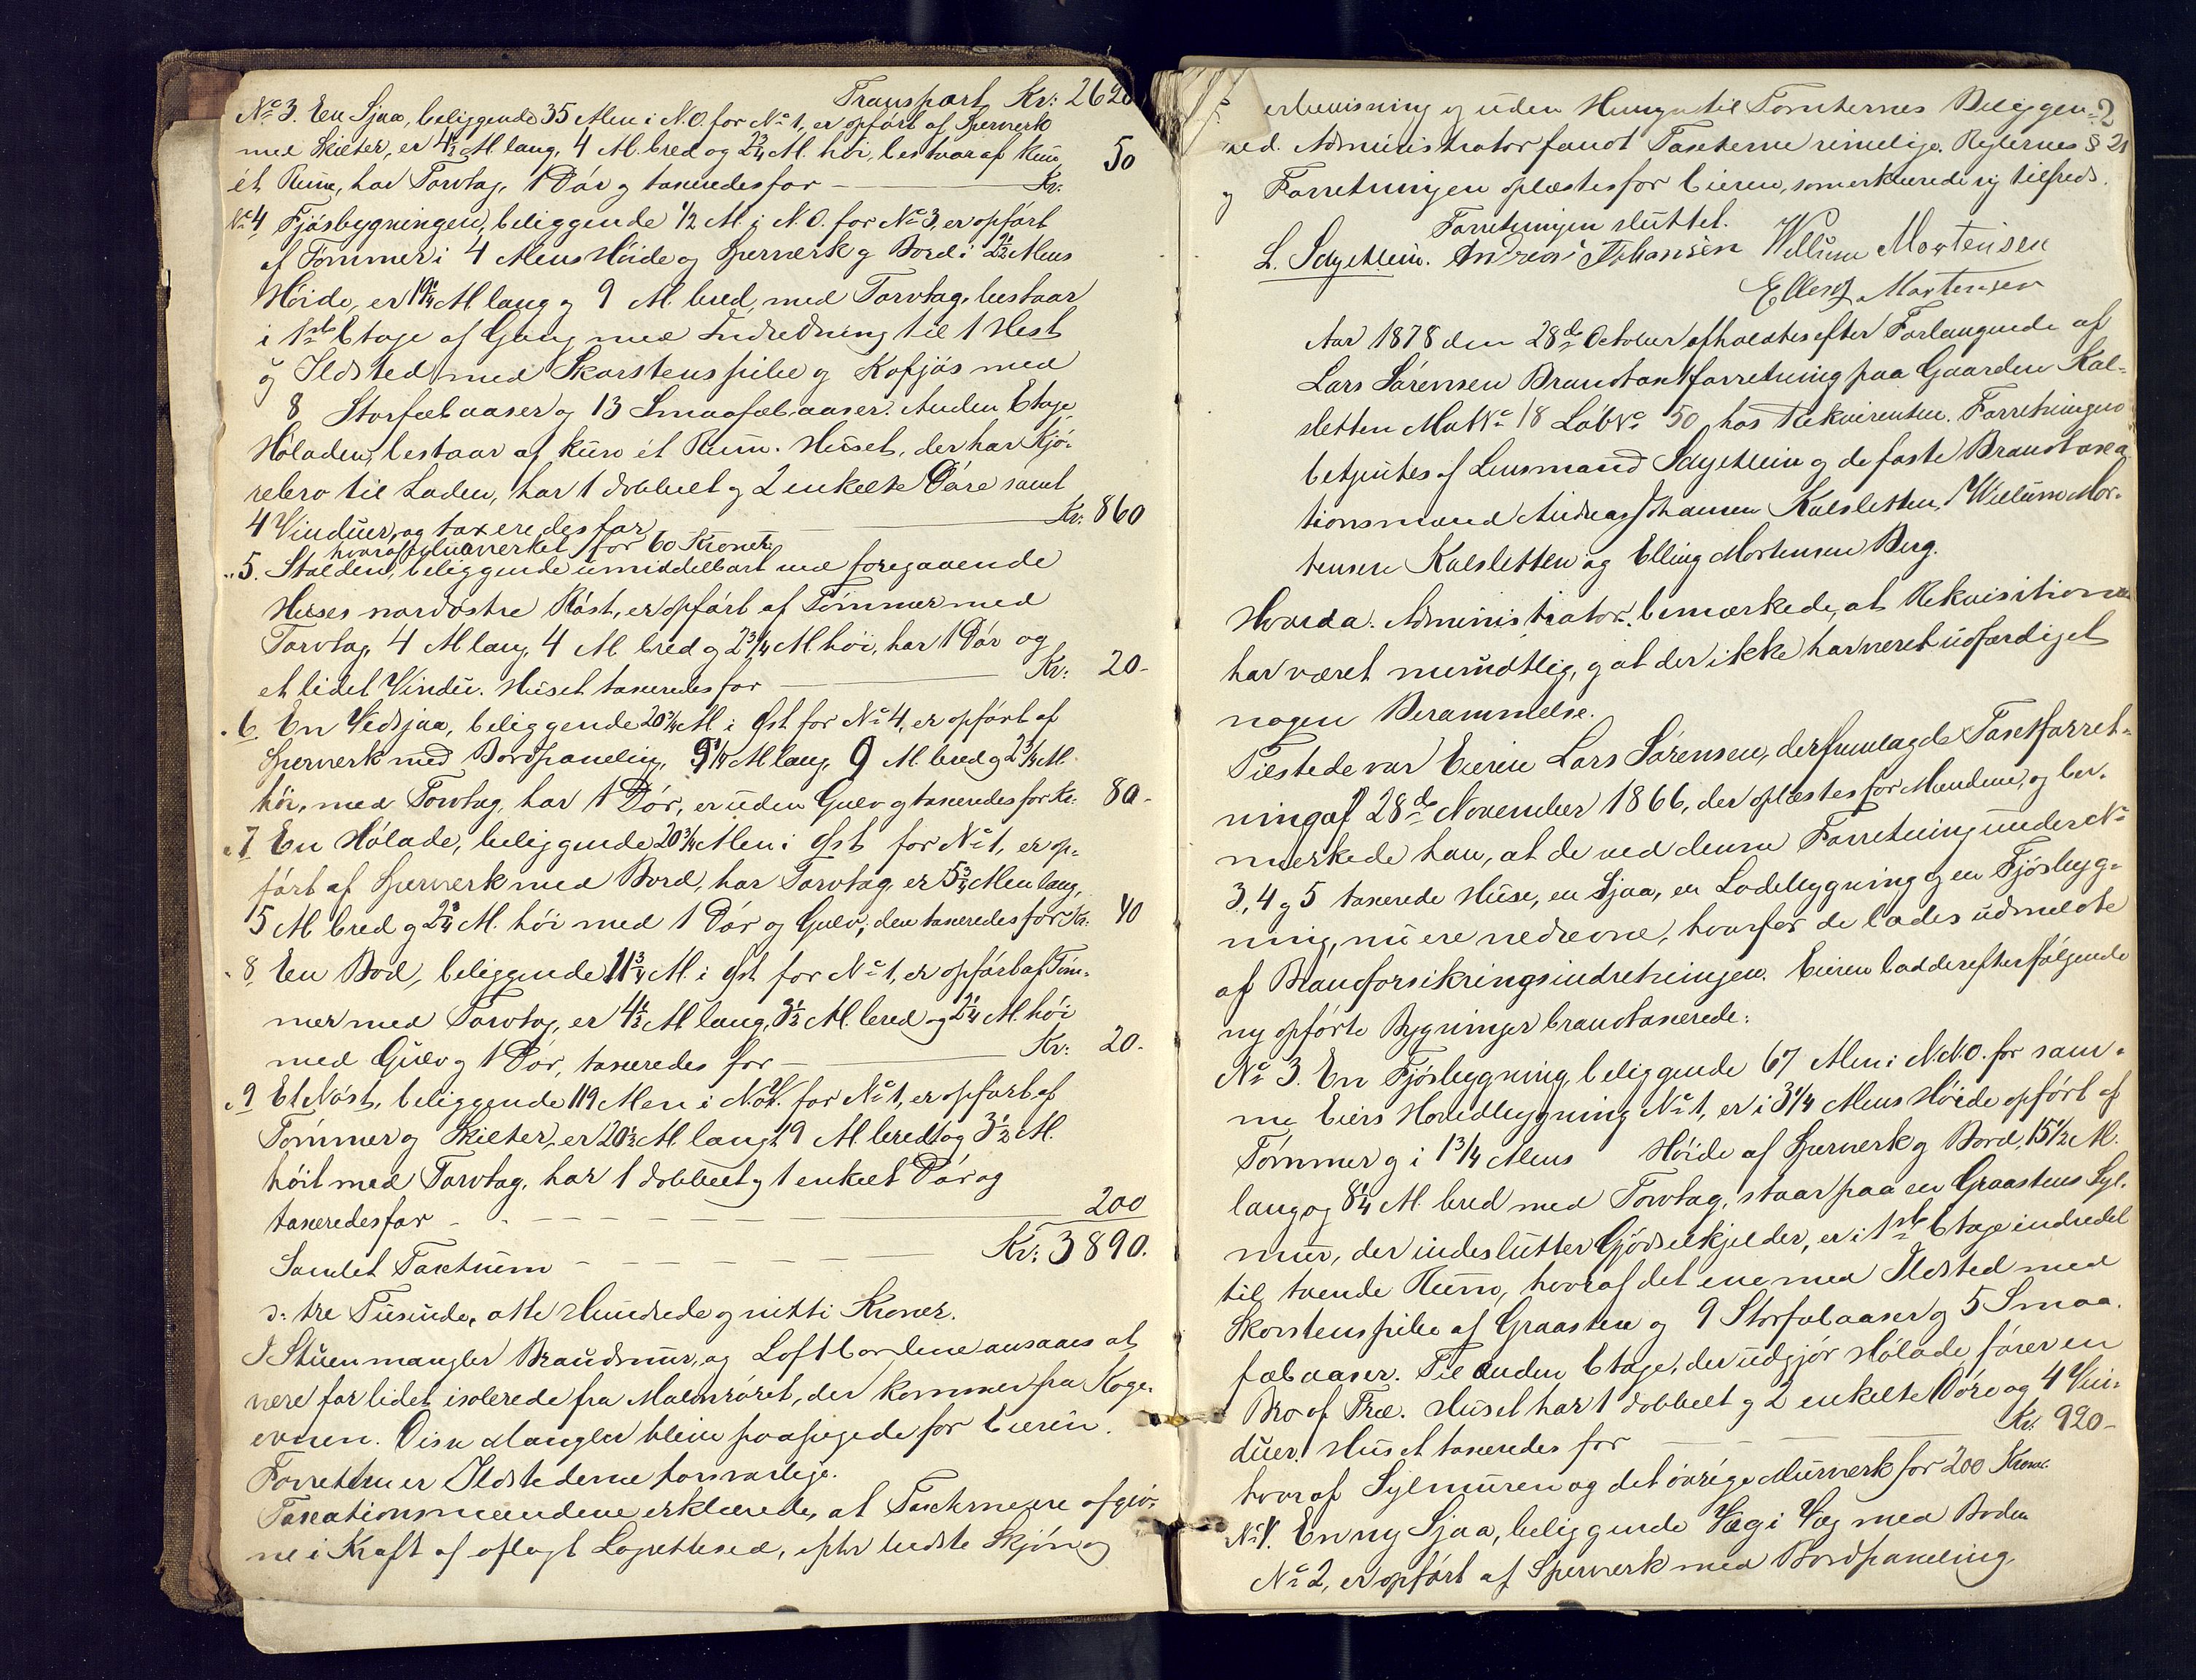 Transport Kr: 2620
No 3. En Sjaa, beliggende 35 Alen i N.O. for No 1, er opført af Sperverk
med Skielter, er 4 1/2 Al. lang, 4 Al. bred og 2 3/4 Al. høi, bestaar af kun
ét Rum, har Torvtag, 1 Dør og taxeredes for — Kr. 50
No 4 Fjøsbygningen, beliggende 1/2 Al. i N.O. for No 3, er opført
af Tømmer i 4 Alens Høide og Sperverk og Bord i 2 1/2 Alens
Høide, er 19 1/4 Al lang og 9 Al. bred, med Torvtag, bestaar
i 1ste Etage af Gang med Indredning til 1 Hest
og Ildsted med Skorstenspibe og Kofjøs med
8 Storfæbaaser og 13 Smaafæbaaser. Anden Etage,
Høladen, bestaar af kun ét Rum. Huset, der har Kjø-
rebro til Laden, har 1 dobbelt og 2 enkelte Døre samt
4 Vinduer, og taxeredes for — Kr: 860
hvoraf Muurverket for 60 Kroner
" 5. Stalden, beliggende umiddelbart ved foregaaende
Huses nordøstre Røst, er opført af Tømmer med
Torvtag, 4 Al lang, 4 Al bred og 2 3/4 Al høi, har 1 Dør og
et lidet Vindu. Huset taxeredes for — Kr: 20-
" 6 En Vedsjaa, beliggende 20 3/4 Al. i Øst for No 4, er opført af
Sperverk med Bordpaneling, 9 1/4 Al lang, 9 Al. bred og 2 3/4 Al.
høi, med Torvtag, har 1 Dør, er uden Gulv og taxeredes for Kr. 80-
" 7 En Hølade, beliggende 20 3/4 Alen i Øst for No 1, er op-
ført af Sperverk med Bord, har Torvtag, er 5 3/4 Alen lang,
5 Al bred og 2 3/4 Al. høi med 1 Dør og Gulv, den taxeredes for Kr. 40
" 8 En Bod, beliggende 11 3/4 Al. i Øst for No 1, er opført af Tøm-
mer med Torvtag, er 4 1/2 Al lang, 3 1/2 Al. bred og 2 1/4 Al. høi
med Gulv og 1 Dør, taxeredes for — Kr: 20-
" 9 Et Nøst, beliggende 119 Alen i N.O. for No 1, er opført af
Tømmer og Skielter, er 20 1/2 Al. langt, 9 Al. bredt og 3 1/2 Al.
høit med Torvtag, har 1 dobbelt og 1 enkelt Dør og
taxeredes for — 200
Samlet Taxtsum — Kr: 3890.
ɔ: tre Tusinde, otte Hundrede og nitti Kroner.
I Stuen mangler Brandmur, og Loftbordene ansaaes at
være for lidet isolerede fra Malmrøret, der kommer fra Koge-
ovnen. Disse Mangler bleve paapegede for Eieren.
Forresten er Ildstederne forsvarlige.
Taxationsmændene erklærede, at Taxterne ere afgiv-
ne i Kraft af aflagt Lagrettesed, efter bedste Skjøn og
2
erbevisning og uden Hensyn til Tomternes Beliggen-
hed. Administrator fandt Taxterne rimelige. Reglernes § 21
og Forretningen oplæstes for Eieren, som erklærede sig tilfreds.
Forretningen sluttet.
L. Schjetlein. Andreas Johansen Willum Mortensen
Elling Mortensen
Aar 1878 den 28de October afholdtes efter Forlangende af
Lars Sørensen Brandtaxtforretning paa Gaarden Kal-
sletten Mat No 18 Løb No 50 hos Rekvirenten. Forretningen
betjentes af Lensmand Schjetlein og de faste Brandtaxa-
tionsmænd Andreas Johansen Kalsletten, Willum Mor-
tensen Kalsletten og Elling Mortensen Berg.
Hvorda. Administrator bemærkede, at Rekvisitionen
har været mundtlig, og at der ikke har været udfærdiget
nogen Berammelse.
Tilstede var Eieren Lars Sørensen, der fremlagde Taxtforret-
ning af 28de November 1866, der oplæstes for Mændene, og be-
mærkede han, at de ved denne Forretning under No
3, 4 og 5 taxerede Huse, en Sjaa, en Ladebygning og en Fjøsbyg-
ning, nu ere nedrevne, hvorfor de lades udmeldte
af Brandforsikringsindretningen. Eieren lod derefter følgende
ny opførte Bygninger brandtaxerede:
No 3. En Fjøsbygning, beliggende 67 Alen i N.N.O. for sam-
me Eiers Hovedbygning No 1, er i 3 1/4 Alens Høide opført af
Tømmer og i 1 3/4 Alens Høide af Sperverk og Bord, 15 1/2 Al.
lang og 8 1/4 Al. bred med Torvtag, staar paa en Graastens Syl-
mur, der indeslutter Gjødselkjelder, er i 1ste Etage indredet
til tvende Rum, hvoraf det ene med Ildsted med
Skorstenspibe af Graasten og 9 Storfæbaaser og 5 Smaa-
fæbaaser. Til anden Etage, der udgjør Hølade, fører en
Bro af Træ. Huset har 1 dobbelt og 2 enkelte Døre og 4 Vin-
duer. Huset taxeredes for — Kr. 920-
hvoraf Sylmuren og det øvrige Murverk for 200 Kroner.
No 4. En ny Sjaa, beliggende Væg i Væg med Boden
No 2, er opført af Sperverk med Bordpaneling,